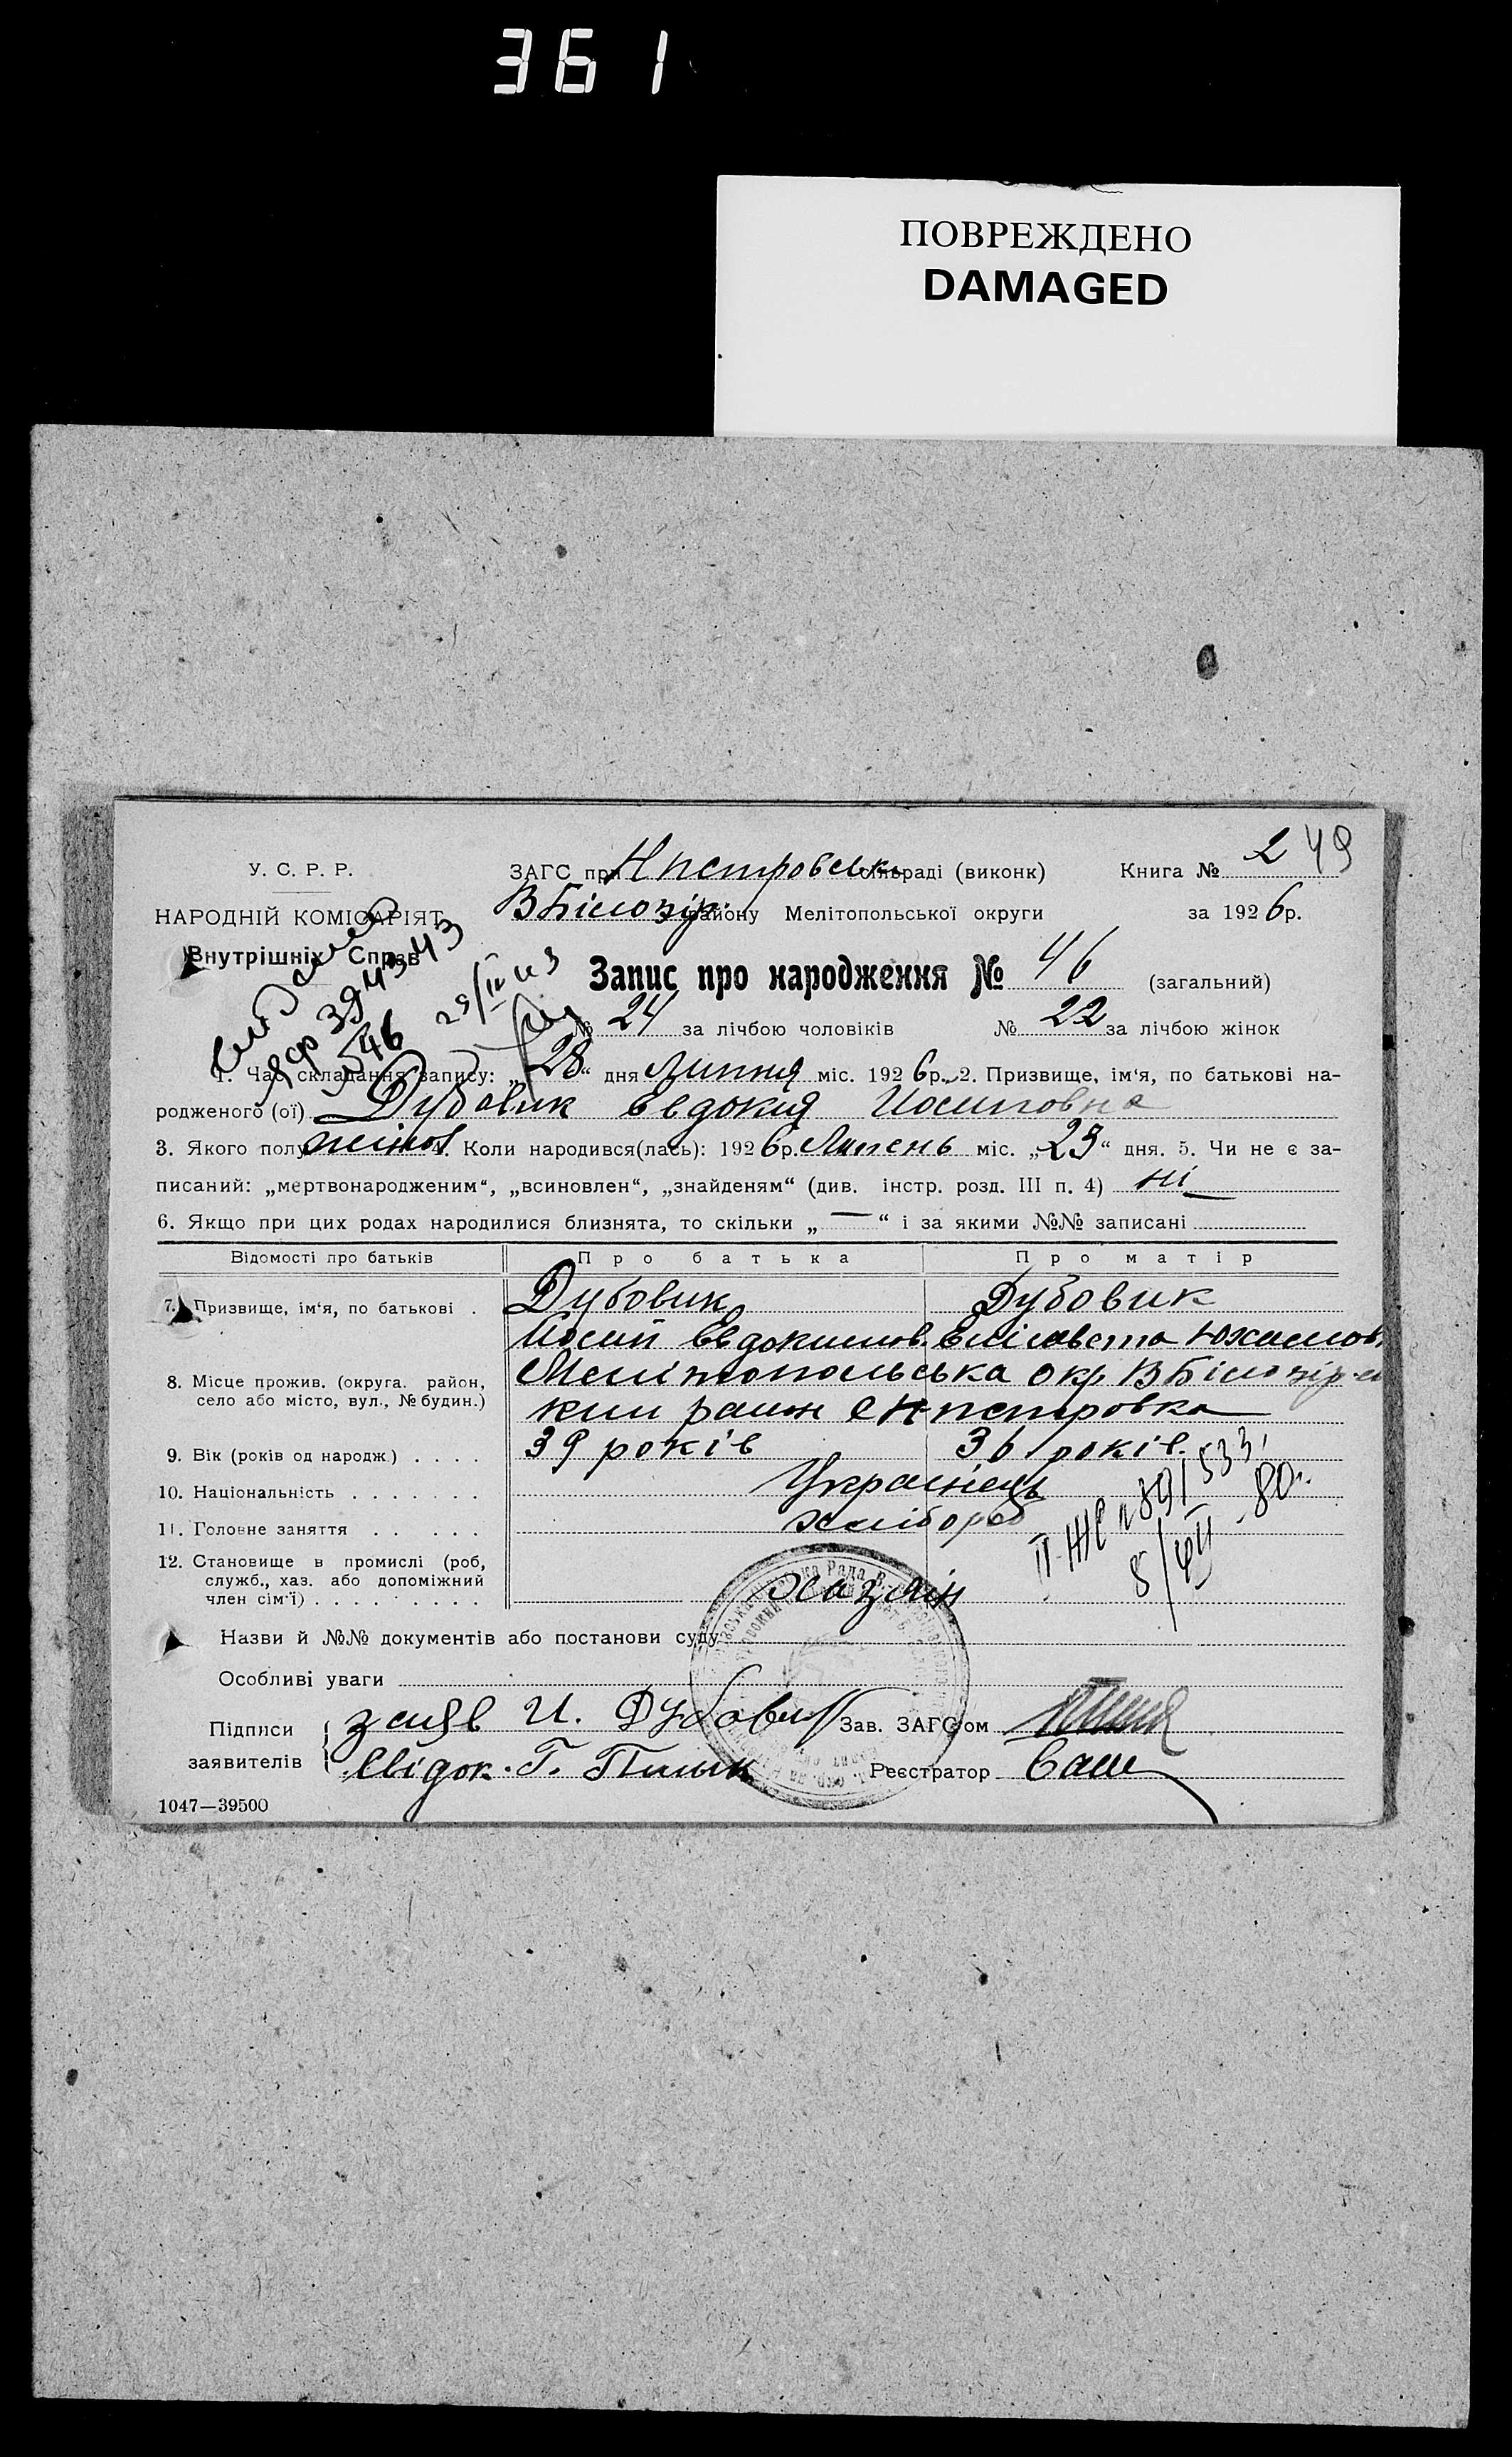 361
ПОВРЕЖДЕНО
DAMAGED
249
У. С. Р. Р. ЗАГС при Н Петровськ сільраді (виконк) Книга №
НАРОДНІЙ КОМІСАРІЯТ В Білозір. району Мелітопольської округи за 1926р.
Внутрішніх Справ
Запис про народження № 46 (загальний)
№ 24 за лічбою чоловіків № 22 за лічбою жінок
39 43 43
№ 46
1. Час складання запису: „28“ дня Липня міс. 1926р. 2. Призвище, ім‘я, по батькові на-
родженого (ої) Дубовик Евдокия Иосиповна
3. Якого полу жіноч 4. Коли народився(лась): 1926р. Липень міс. „23“ дня. 5. Чи не є за-
писаний: „мертвонародженим“, „всиновлен“, „знайденям“ (див. інстр. розд. III п. 4) ні
6. Якщо при цих родах народилися близнята, то скільки „—“ і за якими №№ записані
Відомості про батьків Про батька Про матір
7. Призвище, ім‘я, по батькові . Дубовик Дубовик
Иосип Евдокимов. Елісавета
8. Місце прожив. (округа. район, Мелітопольська окр В Білозір-с
село або місто, вул., № будин.) кии раион с Н петровка
9. Вік (років од народж.) . . . . 39 років 36 років.
10. Національність . . . . . . . Українець
11. Головне заняття . . . . . . хлібороб
12. Становище в промислі (роб,
служб., хаз. або допоміжний
член сім‘ї) . . . . . . . . . хазяїн
Назви й №№ документів або постанови суду
Особливі уваги
Підписи заяв И. Дубовик Зав. ЗАГС‘ом
заявителів Свідок. Г. Реєстратор
1047—39500